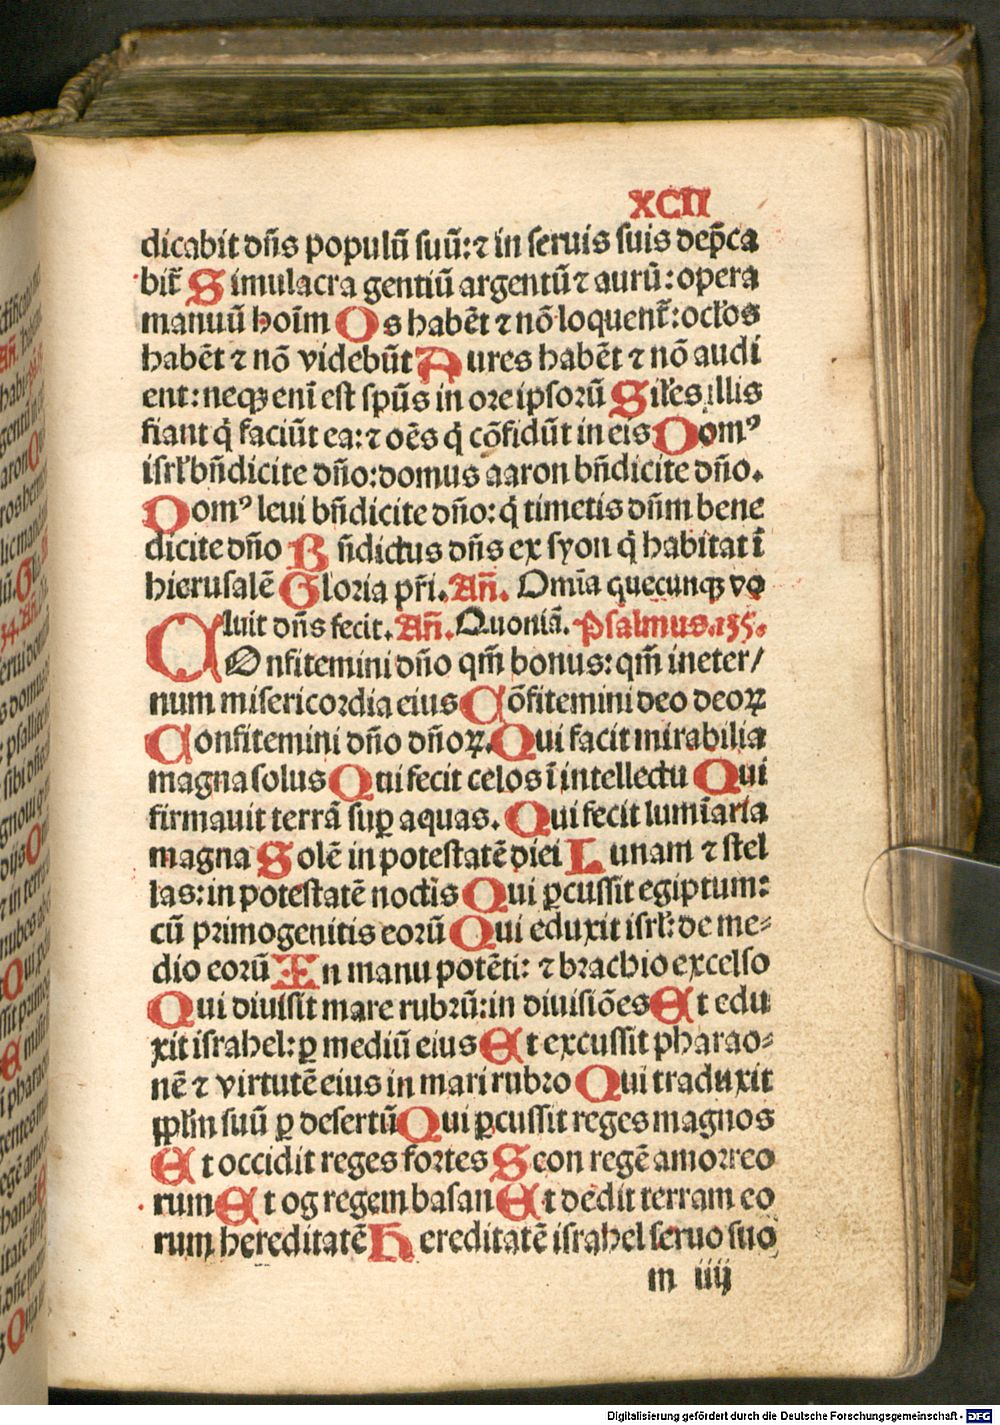 XCII
dicabit dñs populũ suũ: ⁊ in seruis suis dep̃ca
bit̃ Simulacra gentiũ argentũ ⁊ aurũ: opera
manuũ hoĩm Os habẽt ⁊ nõ loquent̃: ocl̃os
habẽt ⁊ nõ videbũt Aures habẽt ⁊ nõ audi
ent: neqꝫ enĩ est spũs in ore ipsorũ Sil̃es illis
fiant q̃ faciũt ea: ⁊ oẽs q̃ cõfidũt in eis Domꝰ
isrl̃ bñdicite dño: domus aaron bñdicite dño.
Domꝰ leui bñdicite dño: q̃ timetis dñm bene
dicite dño Bñdictus dñs ex syon q̃ habitat ĩ
hierusalẽ Gloria pr̃i. Añ. Omĩa quecunqꝫ vo
luit dñs fecit. Añ. Quoniã. Psalmus. 135.
COnfitemini dño qm̃ bonus: qm̃ in eter/
num misericordia eius Cõfitemini deo deoꝝ
Confitemini dño dñoꝝ. Qui facit mirabilia
magna solus Qui fecit celos ĩ intellectu Qui
firmauit terrã suꝑ aquas. Qui fecit lumĩaria
magna Solẽ in potestatẽ diei Lunam ⁊ stel
las: in potestatẽ noctis Qui ꝑcussit egiptum:
cũ primogenitis eorũ Qui eduxit isrl̃: de me⸗
dio eorũ In manu potẽti: ⁊ brachio excelso
Qui diuisit mare rubrũ: in diuisiões Et edu
xit israhel: ꝑ mediũ eius Et excussit pharao⸗
nẽ ⁊ virtutẽ eius in mari rubro Qui traduxit
ppl̃m suũ ꝑ desertũ Qui ꝑcussit reges magnos
Et occidit reges fortes Seon regẽ amorreo
rum Et og regem basan Et dedit terram eo
rum hereditatẽ Hereditatẽ israhel seruo suo
m iiij
Digitalisierung gefördert durch die Deutsche Forschungsgemeinschaft - DFG